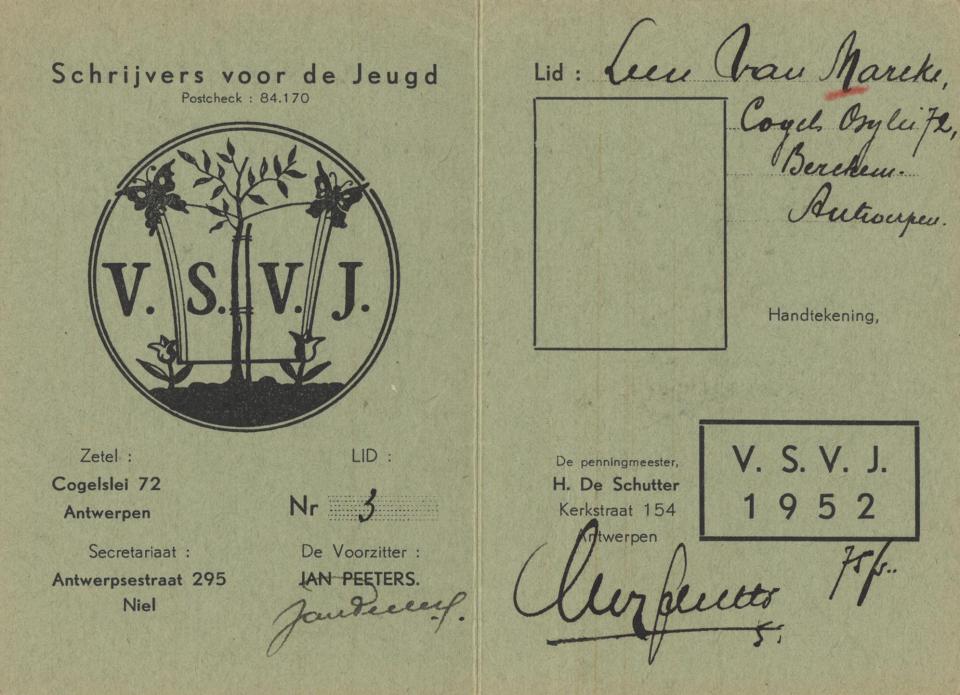 Schrijvers voor de Jeugd
Postcheck : 84.170
V. S. V. J.
Zetel :
Cogelslei 72
Antwerpen
Secretariaat :
Antwerpsestraat 295
Niel
LID :
Nr 3
De Voorzitter :
JAN PEETERS.
Lid : Leen Van Marcke,
Cogels Osylei 72,
Berchem.
Antwerpen.
Handtekening,
De penningmeester,
H. De Schutter
Kerkstraat 154
Antwerpen
V. S. V. J.
1952